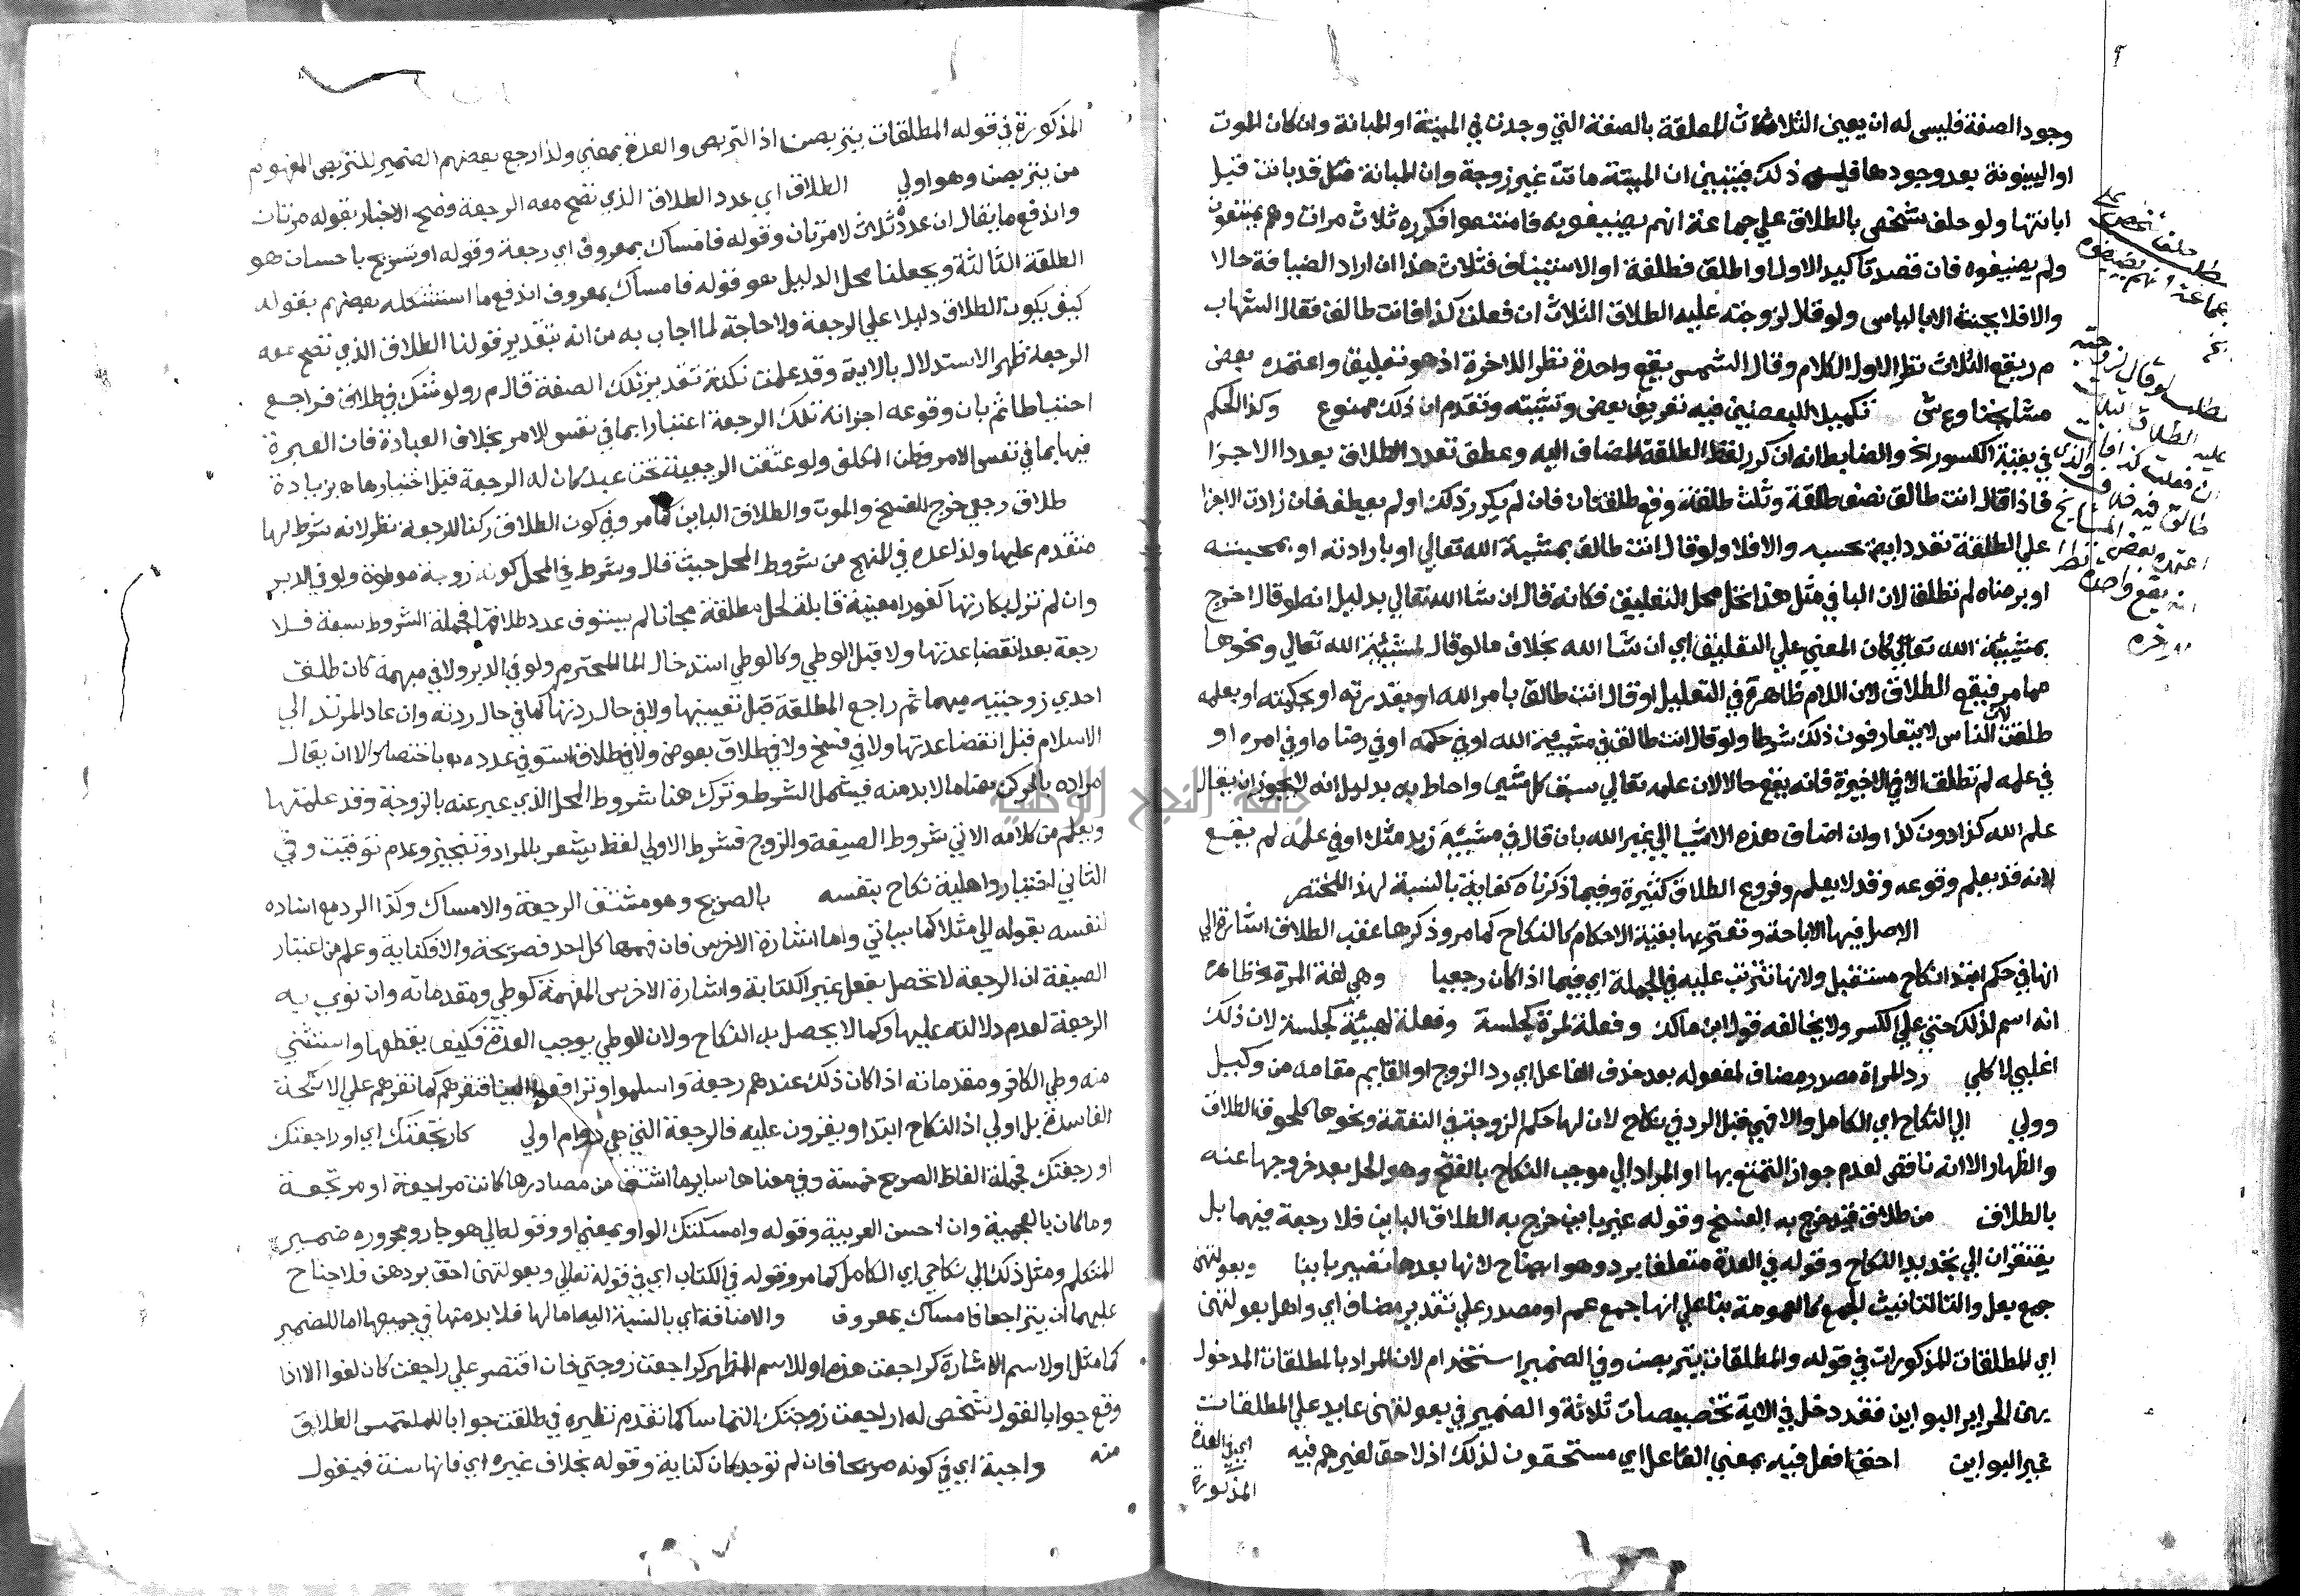 وجود الصفة فليس له ان يعين الثلاث المعلقة بالصفة التي وجدت في الميتة او المبانة وان كان الموت
او البينونة بعد وجودها فليس ذلك فيتبين ان الميتة ماتت غير زوجة وان المبانة مثل قد بانت قبل
ابانتها ولو حلف شخص بالطلاق علي جماعة انهم يضيفونه فامتنعوا فكرره ثلاث مرات وهم يمتنعون
ولم يضيفوه فان قصد تأكيد الاولي او اطلق فطلقة او الاستيناف فثلاث هذا ان اراد الضيافة حالا
والا فلا يحنث الا بالياس ولو قال لزوجته عليه الطلاق الثلاث ان فعلت كذا فانت طالق فقال الشهاب
م ر يقع الثلاث نظرا لاول الكلام وقال الشمس يقع واحدة نظرا لاخره اذ هو تعليق واعتمده بعض
مشايخنا وع ش تكميل للبعضين فيه تعريف بعض وتثنيته وتقدم ان ذلك ممنوع وكذا الحكم
في بقية الكسور الخ والضابط انه ان كرر لفظ الطلقة المضاف اليه وعطف تعدد الطلاق بعدد الاجزا
فاذا قال انت طالق نصف طلقة وثلث طلقة وقع طلقتان فان لم يكرر ذلك او لم يعطف فان زادت الاجزا
علي الطلقة تعدد ايضا بحسبه والا فلا ولو قال انت طالق بمشيئة الله تعالي او بارادته او بمحبته
او برضاه لم تطلق لان البا في مثل هذا تحل محل التعليق فكانه قال ان شا الله تعالي بدليل انه لو قال اخرج
بمشيئة الله تعالي كان المعني علي التعليق اي ان شا الله بخلاف ما لو قال لمشيئة الله تعالي ونحوها
مما مر فيقع الطلاق لان اللام ظاهرة في التعليل او قال انت طالق بامر الله او بقدرته او بحكمته او بعلمه
طلقت لان الناس لا يتعارفون ذلك شرطا ولو قال انت طالق في مشيئة الله او في حكمه او في رضاه او في امره او
في علمه لم تطلق الا في الاخيرة فانه يقع حالا لان علمه تعالي سبق كل شي واحاط به بدليل انه لا يجوز ان يقال
علم الله كذا دون كذا وان اضاف هذه الاشيا الي غير الله بان قال في مشيئة زيد مثلا او في علمه لم يقع
لانه قد يعلم وقوعه وقد لا يعلم وفروع الطلاق كثيرة وفيما ذكرناه كفاية بالنسبة لهذا المختصر
الاصل فيها الاباحة وتعتريها بقية الاحكام كالنكاح كما مر وذكرها عقب الطلاق اشارة الي
انها في حكم ابتدا نكاح مستقبل ولانها تترتب عليه في الجملة اي فيما اذا كان رجعيا وهي لغة المرة الخ ظاهره
انه اسم لذلك حتي علي الكسر ولا يخالفه قول ابن مالك وفعلة لمرة كجلسة وفعلة لهيئة كجلسة لان ذلك
اغلبي لا كلي رد المراة مصدر مضاف لمفعوله بعد حذف الفاعل اي رد الزوج او القايم مقامه من وكيل
وولي الي النكاح اي الكامل والا فهي قبل الرد في نكاح لان لها حكم الزوجة في النفقة ونحوها كلحوق الطلاق
والظهار الا انه ناقص لعدم جواز التمتع بها او المراد الي موجب النكاح بالفتح وهو الحل بعد خروجها عنه
بالطلاق من طلاق قيد خرج به الفسخ وقوله غير باين خرج به الطلاق الباين فلا رجعة فيهما بل
يفتقران الي تجديد النكاح وقوله في العدة متعلق برد وهو ايضاح لانها بعدها تصير باينا وبعولتهن
جمع بعل والتا لتانيث الجمع كالعمومة بنا علي انها جمع عم او مصدر علي تقدير مضاف اي واهل بعولتهن
اي المطلقات المذكورات في قوله والمطلقات يتربصن وفي الضمير استخدام لان المراد بالمطلقات المدخول
بهن الحراير البواين فقد دخل في الاية تخصيصات ثلاثة والضمير في بعولتهن عايد علي المطلقات
غير البواين احق افعل فيه بمعني الفاعل اي مستحقون لذلك اذ لا حق لغيرهم فيه اي في العدة
المذكورة
مطلب حلف شخص علي
جماعة انهم يضيفوه
الخ
مطلب لو قال لزوجته
عليه الطلاق ثلاث
ان فعلت كذا فانت
طالق فيه خلاف والذي
اعتمده بعض المشايخ
انه يقع واحدة نظرا
لاخره
المذكورة في قوله المطلقات يتربصن اذ التربص والعدة بمعني ولذا رجع بعضهم الضمير للتربص المفهوم
من يتربصن وهو اولي الطلاق اي عدد الطلاق الذي تصح معه الرجعة فصح الاخبار بقوله مرتان
واندفع ما يقال ان عدده ثلاث لا مرتان وقوله فامساك بمعروف اي رجعة وقوله او تسريح باحسان هو
الطلقة الثالثة وبجعلنا محل الدليل هو قوله فامساك بمعروف اندفع ما استشكله بعضهم بقوله
كيف يكون الطلاق دليلا علي الرجعة ولا حاجة لما اجاب به من انه بتقدير قولنا الطلاق الذي تصح معه
الرجعة ظهر الاستدلال بالاية وقد علمت نكتة تقدير تلك الصفة قال م ر ولو شك في طلاق فراجع
احتياطا ثم بان وقوعه اجزاته تلك الرجعة اعتبارا بما في نفس الامر بخلاف العبادة فان العبرة
فيها بما في نفس الامر وظن المكلف ولو عتقت الرجعية تحت عبد كان له الرجعة قبل اختيارها ه بزيادة
طلاق رجعي خرج الفسخ والموت والطلاق الباين كما مر وفي كون الطلاق ركنا للرجعة نظر لانه شرط لها
متقدم عليها ولذا عده في المنهج من شروط المحل حيث قال وشرط في المحل كونه زوجة موطوة ولو في الدبر
وان لم تزل بكارتها كغورا معينة قابلة لحل مطلقة مجانا لم يستوف عدد طلاقها فجملة الشروط سبعة فلا
رجعة بعد انقضا عدتها ولا قبل الوطي وكالوطي استدخال الما المحترم ولو في الدبر ولا في مبهمة كان طلق
احدي زوجتيه مبهما ثم راجع المطلقة قبل تعيينها ولا في حال ردتها كما في حال ردته وان عاد المرتد الي
الاسلام قبل انقضا عدتها ولا في فسخ ولا في طلاق بعوض ولا في طلاق استوفي عدده ه باختصار الا ان يقال
مراده بالركن هنا ما لا بد منه فيشمل الشرط وترك هنا شروط المحل الذي عبر عنه بالزوجة وقد علمتها
ويعلم من كلامه الاتي شروط الصيغة والزوج فشرط الاولي لفظ يشعر بالمراد وتنجيز وعدم توقيت وفي
الثاني اختيار واهلية نكاح بنفسه بالصريح وهو مشتق الرجعة والامساك وكذا الرد مع اسناده
لنفسه بقوله الي مثلا كما سياتي واما اشارة الاخرس فان فهمها كل احد فصريحة والا فكناية وعلم من اعتبار
الصيغة ان الرجعة لا تحصل بفعل غير الكتابة واشارة الاخرس المفهمة كوطي ومقدماته وان نوي به
الرجعة لعدم دلالته عليها وكما لا يحصل به النكاح ولان الوطي يوجب العدة فكيف يقطعها واستثني
منه وطي الكافر ومقدماته اذا كان ذلك عندهم رجعة واسلموا او ترافعوا الينا فنقرهم كما نقرهم علي الانكحة
الفاسدة بل اولي اذ النكاح ابتدا ويقرون عليه فالرجعة التي هي دوام اولي كارتجعتك اي او راجعتك
او رجعتك فجملة الفاظ الصريح خمسة وفي معناها ساير ما اشتق من مصادرها كانت مراجعة او مرتجعة
وما كان بالعجمية وان احسن العربية وقوله وامسكتك الواو بمعني او وقوله الي هو جار ومجروره ضمير
المتكلم ومثل ذلك الي نكاحي اي الكامل كما مر وقوله في الكتاب اي في قوله تعالي وبعولتهن احق بردهن فلا جناح
عليهما ان يتراجعا فامساك بمعروف والاضافة اي بالنسبة اليه اما لها فلا بد منها في جميعها اما للضمير
كما مثل او لاسم الاشارة كراجعت هذه او للاسم المظهر كراجعت زوجتي فان اقتصر علي راجعت كان لغوا الا اذا
وقع جوابا لقول شخص له اراجعت زوجتك التماسا كما تقدم نظيره في طلقت جوابا لملتمس الطلاق
منه واجبة اي في كونه صريحا فان لم توجد كان كناية وقوله بخلاف غيره اي فانها سنة فيقول
جامعة النجاح الوطنية